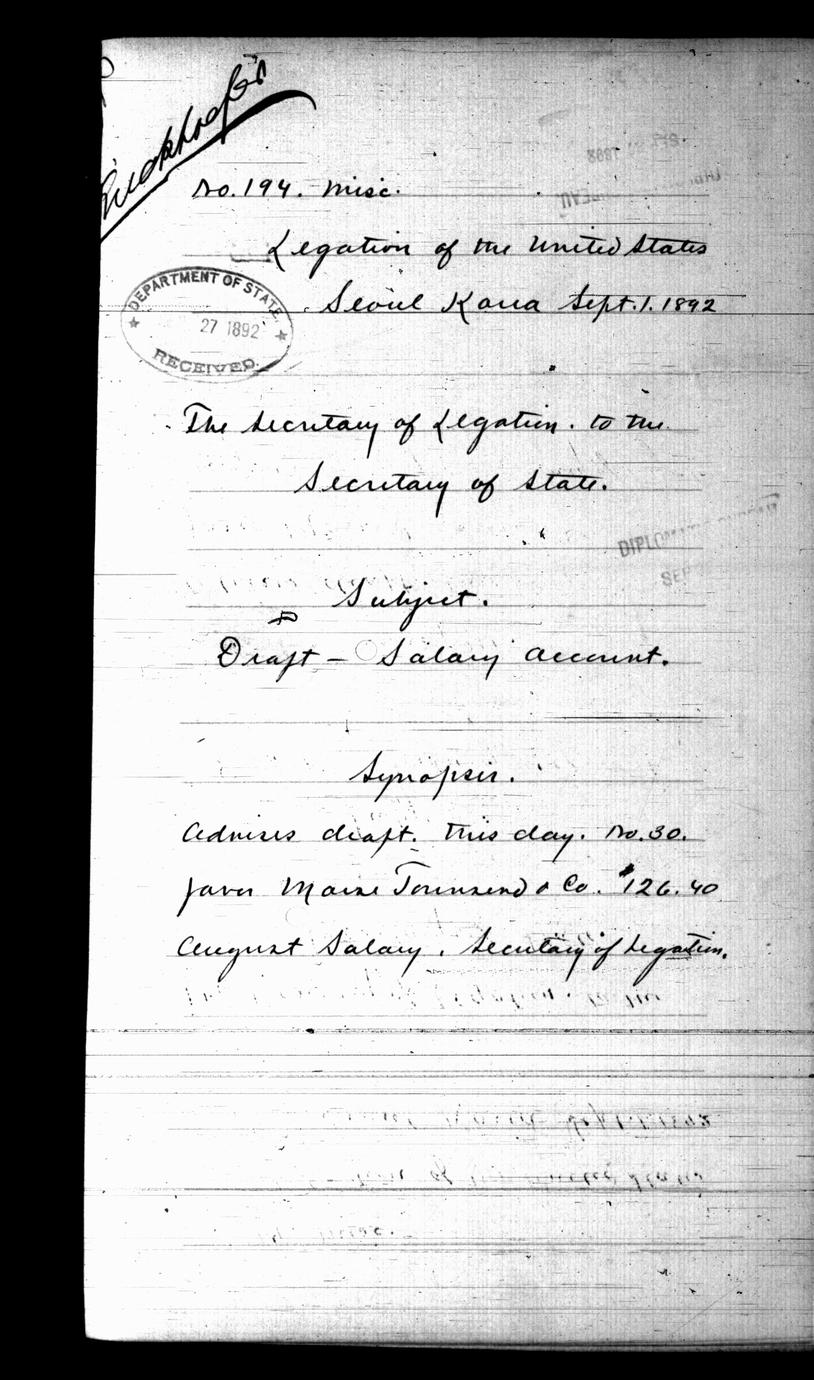 No. 194. Misc.
Legation of the United States
Seoul Korea Sept. 1. 1892
DEPARTMENT OF STATE.
27 1892
RECEIVED.
The Secretary of Legation. to the
Secretary of State.
SEP
Subject.
Draft — Salary account.
Synopsis.
Advises draft. this day. No. 30.
favor Morse Townsend & Co. $126.40
August Salary. Secretary of Legation.